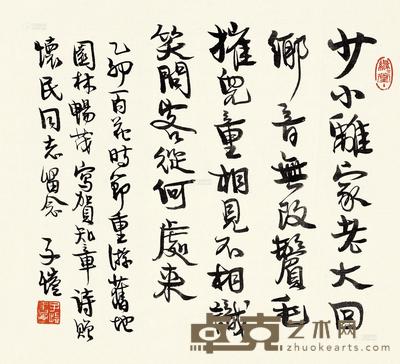 少小離家老大回
鄉音無改鬢毛
摧兒童相見不相識
笑問客從何處来
乙卯百花時節重游舊地
園林暢茂寫賀知章詩贈
懷民同志留念 子愷
卓克艺术网